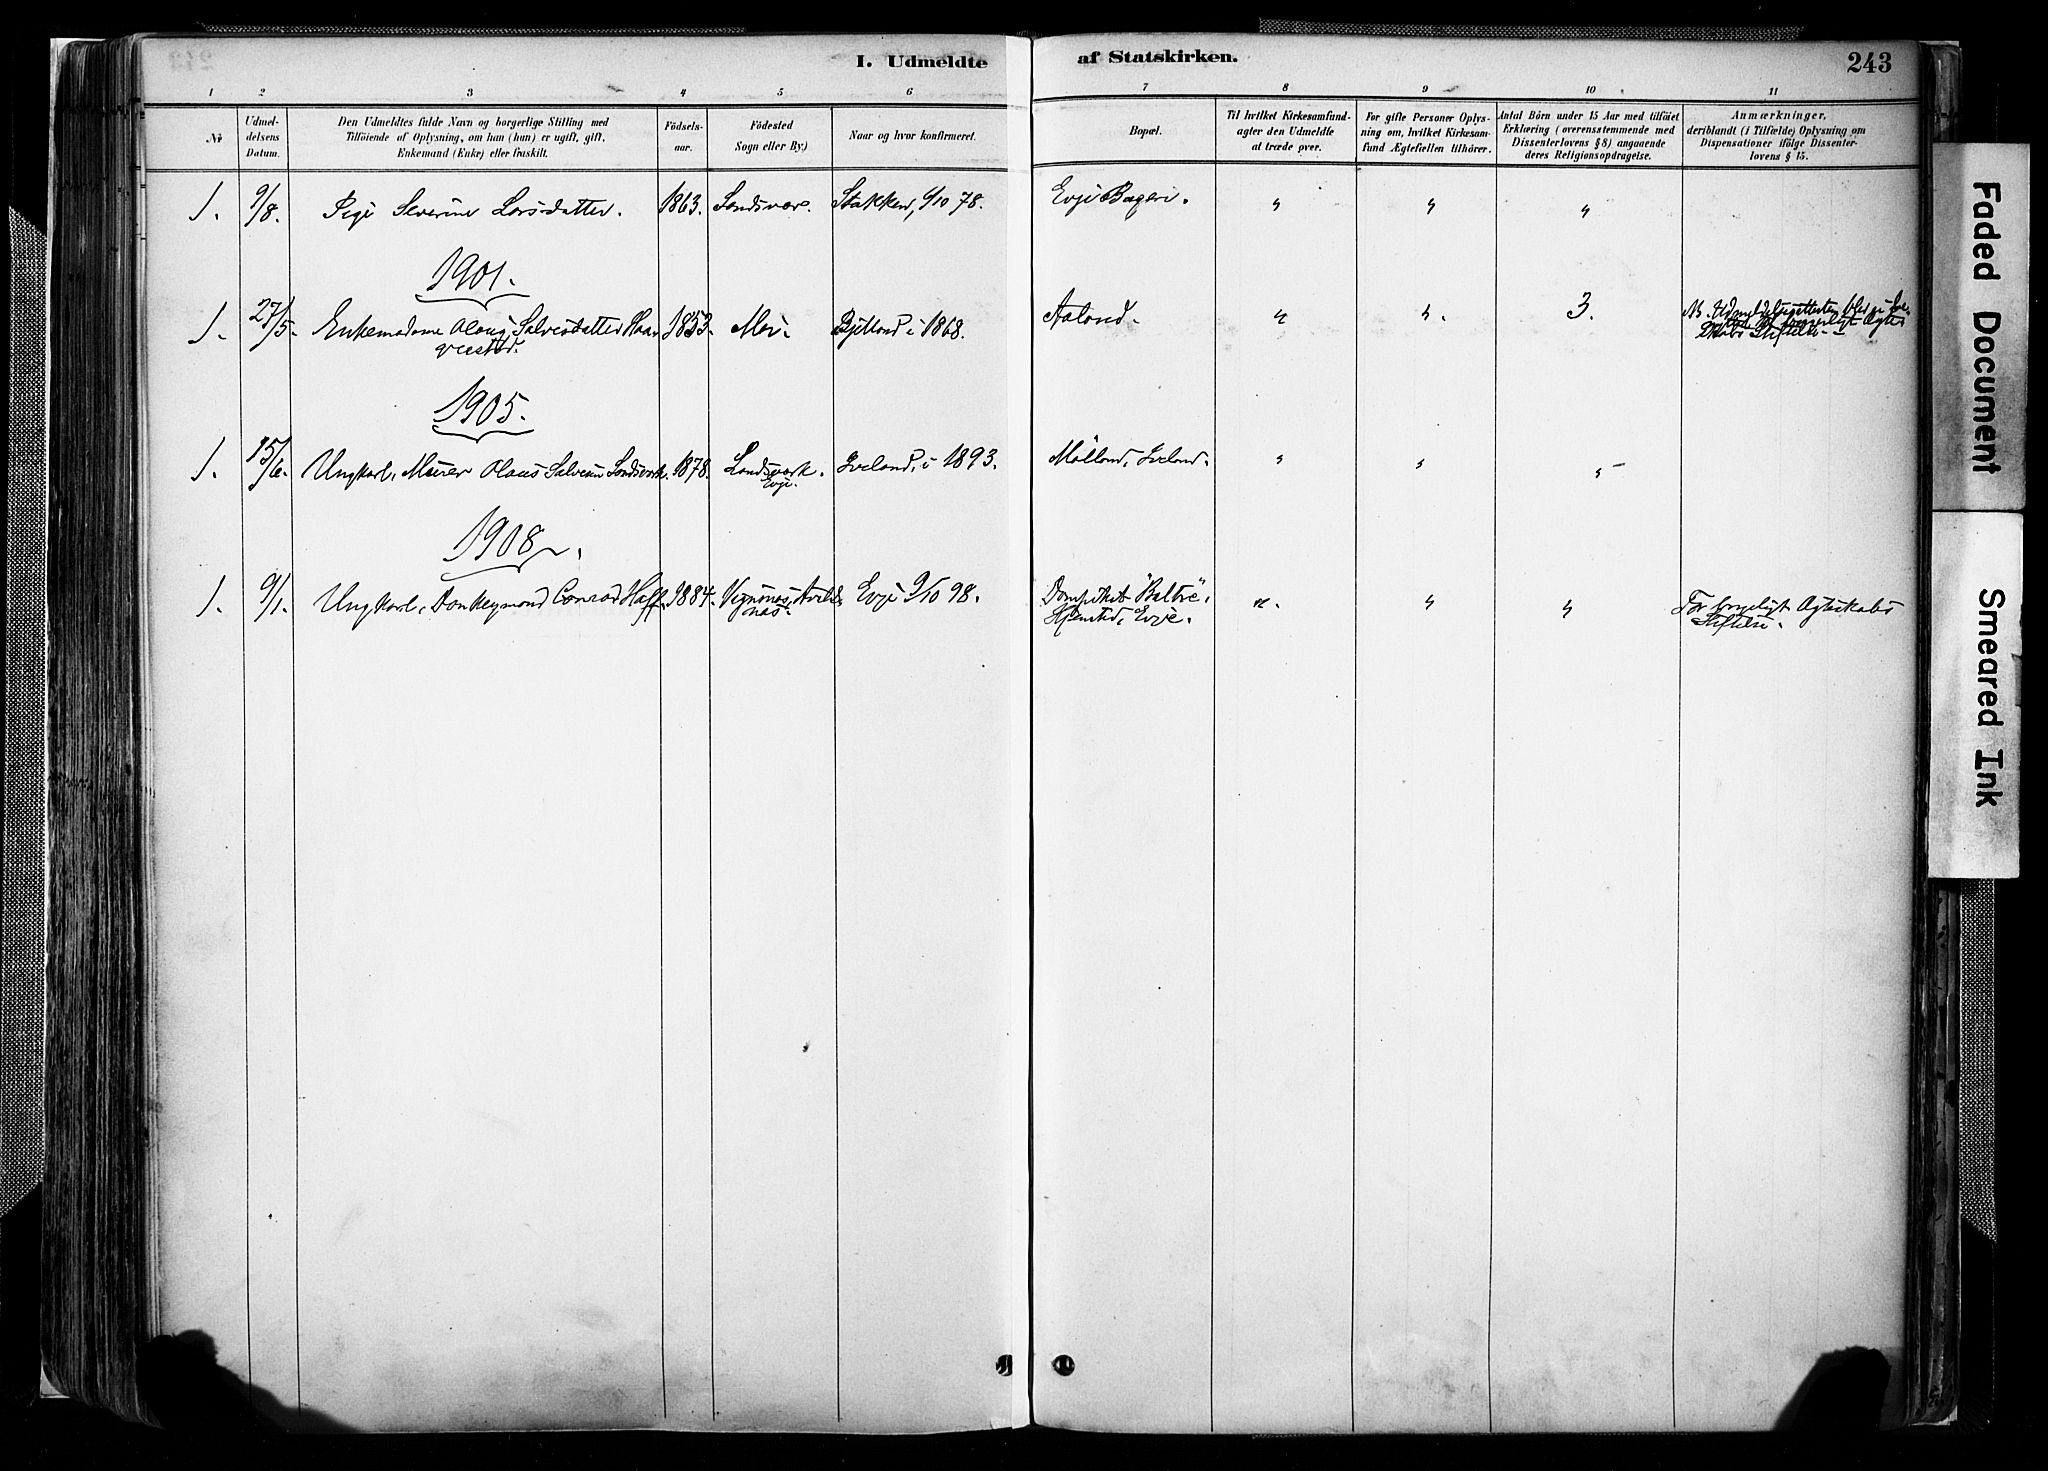 I. Udmeldte af Statskirken.
243
1 2 3 4 5 6 7 8 9 10 11
Nr.
Udmeldelsens Datum.
Den Udmeldtes fulde Navn og borgerlige Stilling med
Tilföiende af Oplysning, om han (hun) er ugift, gift,
Enkemand (Enke) eller fraskilt.
Födselsaar.
Födested
Sogn eller By.)
Naar og hvor konfirmeret.
Bopæl.
Til hvilket Kirkesamfund-
agter den Udmeldte
at træde over.
For gifte Personer Oplys-
ning om, hvilket Kirkesam-
fund Ægtefællen tilhörer.
Antal Börn under 15 Aar med tilföiet
Erklæring (overensstemmende med
Dissenterlovens § 8) angaaende
deres Religionsopdragelse.
Anmærkninger,
deriblandt (i Tilfælde) Oplysning om
Dispensationer ifölge Dissenter-
lovens § 15.
1. 9/8. Pige Severine Larsdatter. 1863. Sandsvær. 78. Evje Bageri. " " "
1901.
1. 27/5. Enkemadame Salvesdatter 1853. Bjelland i 1868. Aaland. " " 3.
1905.
1. 15/6. Ungkarl, Murer Olaus Salvesen Landsverk. 1878. Landsverk. Iveland, i 1893. Mölland, Iveland. " " "
Evje.
1908.
1. 9/1. Ungkarl, Conrad 1884. Evje 9/10 98. " " For borgerligt Ægteskabs
Evje. Stiftelse.
Faded Document
Smeared Ink